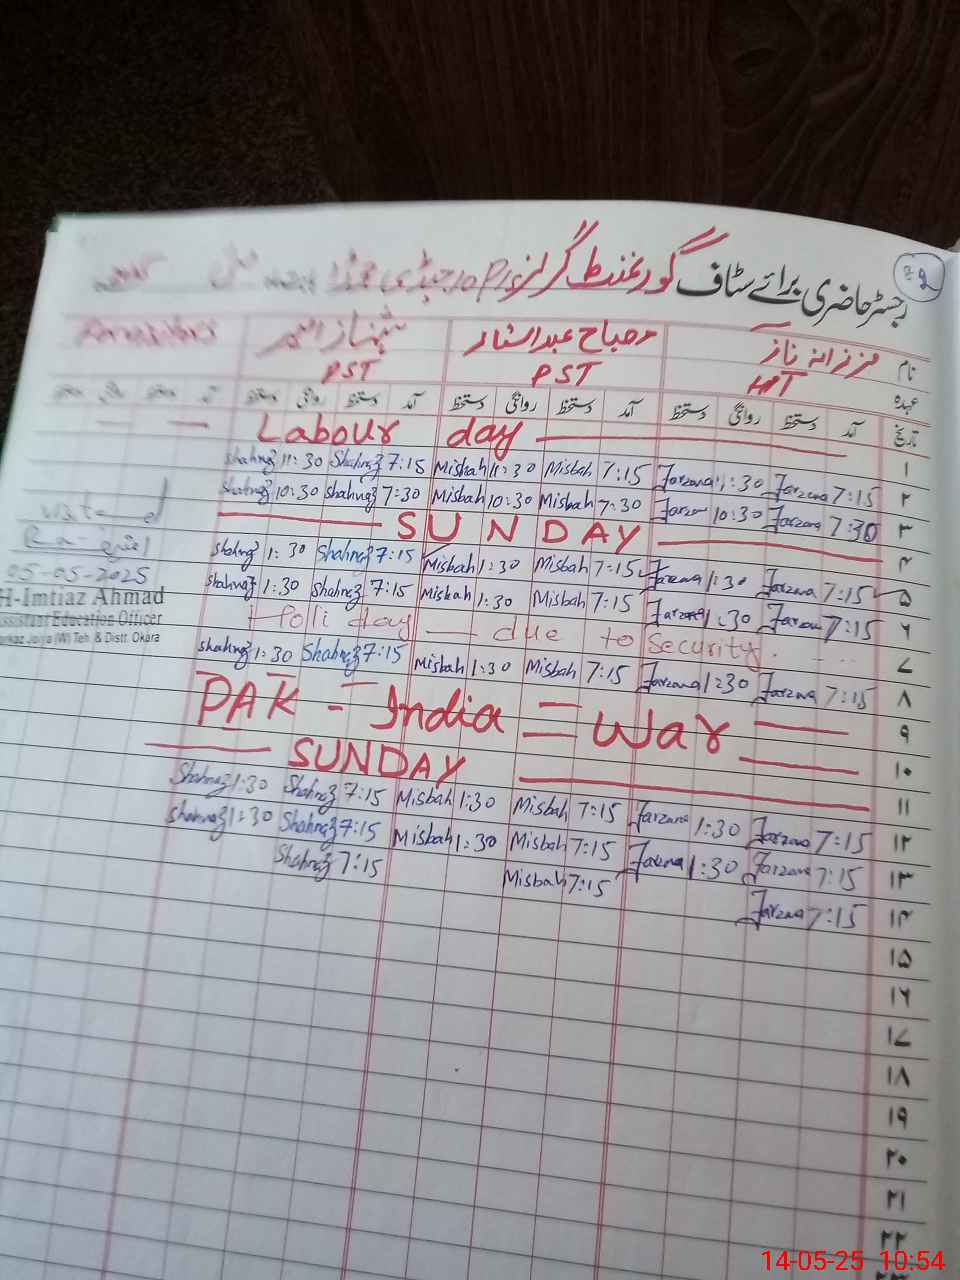 2
رجسٹر حاضری برائے سٹاف گورنمنٹ گرلز
نام فرزانہ ناز مصباح عبدالستار شہناز
عہدہ HPT PST PST
تاریخ آمد دستخط روانگی دستخط آمد دستخط روانگی دستخط آمد دستخط روانگی دستخط آمد
Labour day ۱
Shahnaz 11:30 Shahnaz 7:15 Misbah 11:30 Misbah 7:15 Farzana 11:30 Farzana 7:15 ۲
Shahnaz 10:30 Shahnaz 7:30 Misbah 10:30 Misbah 7:30 Farzan 10:30 Farzana 7:30 ۳
SUNDAY ۴
Shahnaz 1:30 Shahnaz 7:15 Misbah 1:30 Misbah 7:15 Farzana 1:30 Farzana 7:15 ۵
Shahnaz 1:30 Shahnaz 7:15 Misbah 1:30 Misbah 7:15 Farzana 1:30 Farzana 7:15 ۶
Holi day — due to Security. ۷
Shahnaz 1:30 Shahnaz 7:15 Misbah 1:30 Misbah 7:15 Farzana 1:30 Farzana 7:15 ۸
PAK - India = War ۹
۱۰
SUNDAY ۱۱
Shahnaz 1:30 Shahnaz 7:15 Misbah 1:30 Misbah 7:15 Farzana 1:30 Farzana 7:15 ۱۲
Shahnaz 1:30 Shahnaz 7:15 Misbah 1:30 Misbah 7:15 Farzana 1:30 Farzana 7:15 ۱۳
Shahnaz 7:15 Misbah 7:15 Farzana 7:15 ۱۴
۱۵
۱۶
۱۷
۱۸
۱۹
۲۰
۲۱
۲۲
05-05-2025
H-Imtiaz Ahmad
Assistant Education Officer
Markaz Jojya (W) Teh & Distt. Okara
14-05-25 10:54